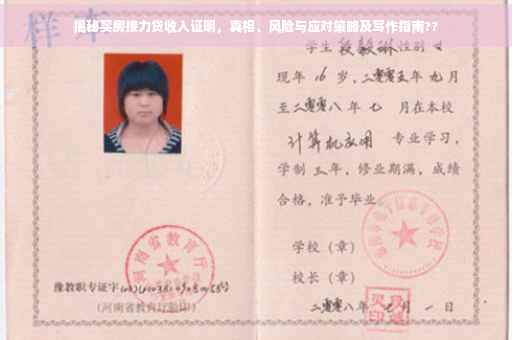 揭秘买房接力贷收入证明，真相、风险与应对策略及写作指南??
样本
学生 段毅琳 性别 女
现年 16 岁，二零零五年 九月
至二零零八年 七 月在本校
计算机应用 专业学习，
学制 三 年，修业期满，成绩
合格，准予毕业。
学校（章）
校长（章）
二零零八年 月 一 日
河南省教育厅
豫教职专证字
（河南省教育厅验印）